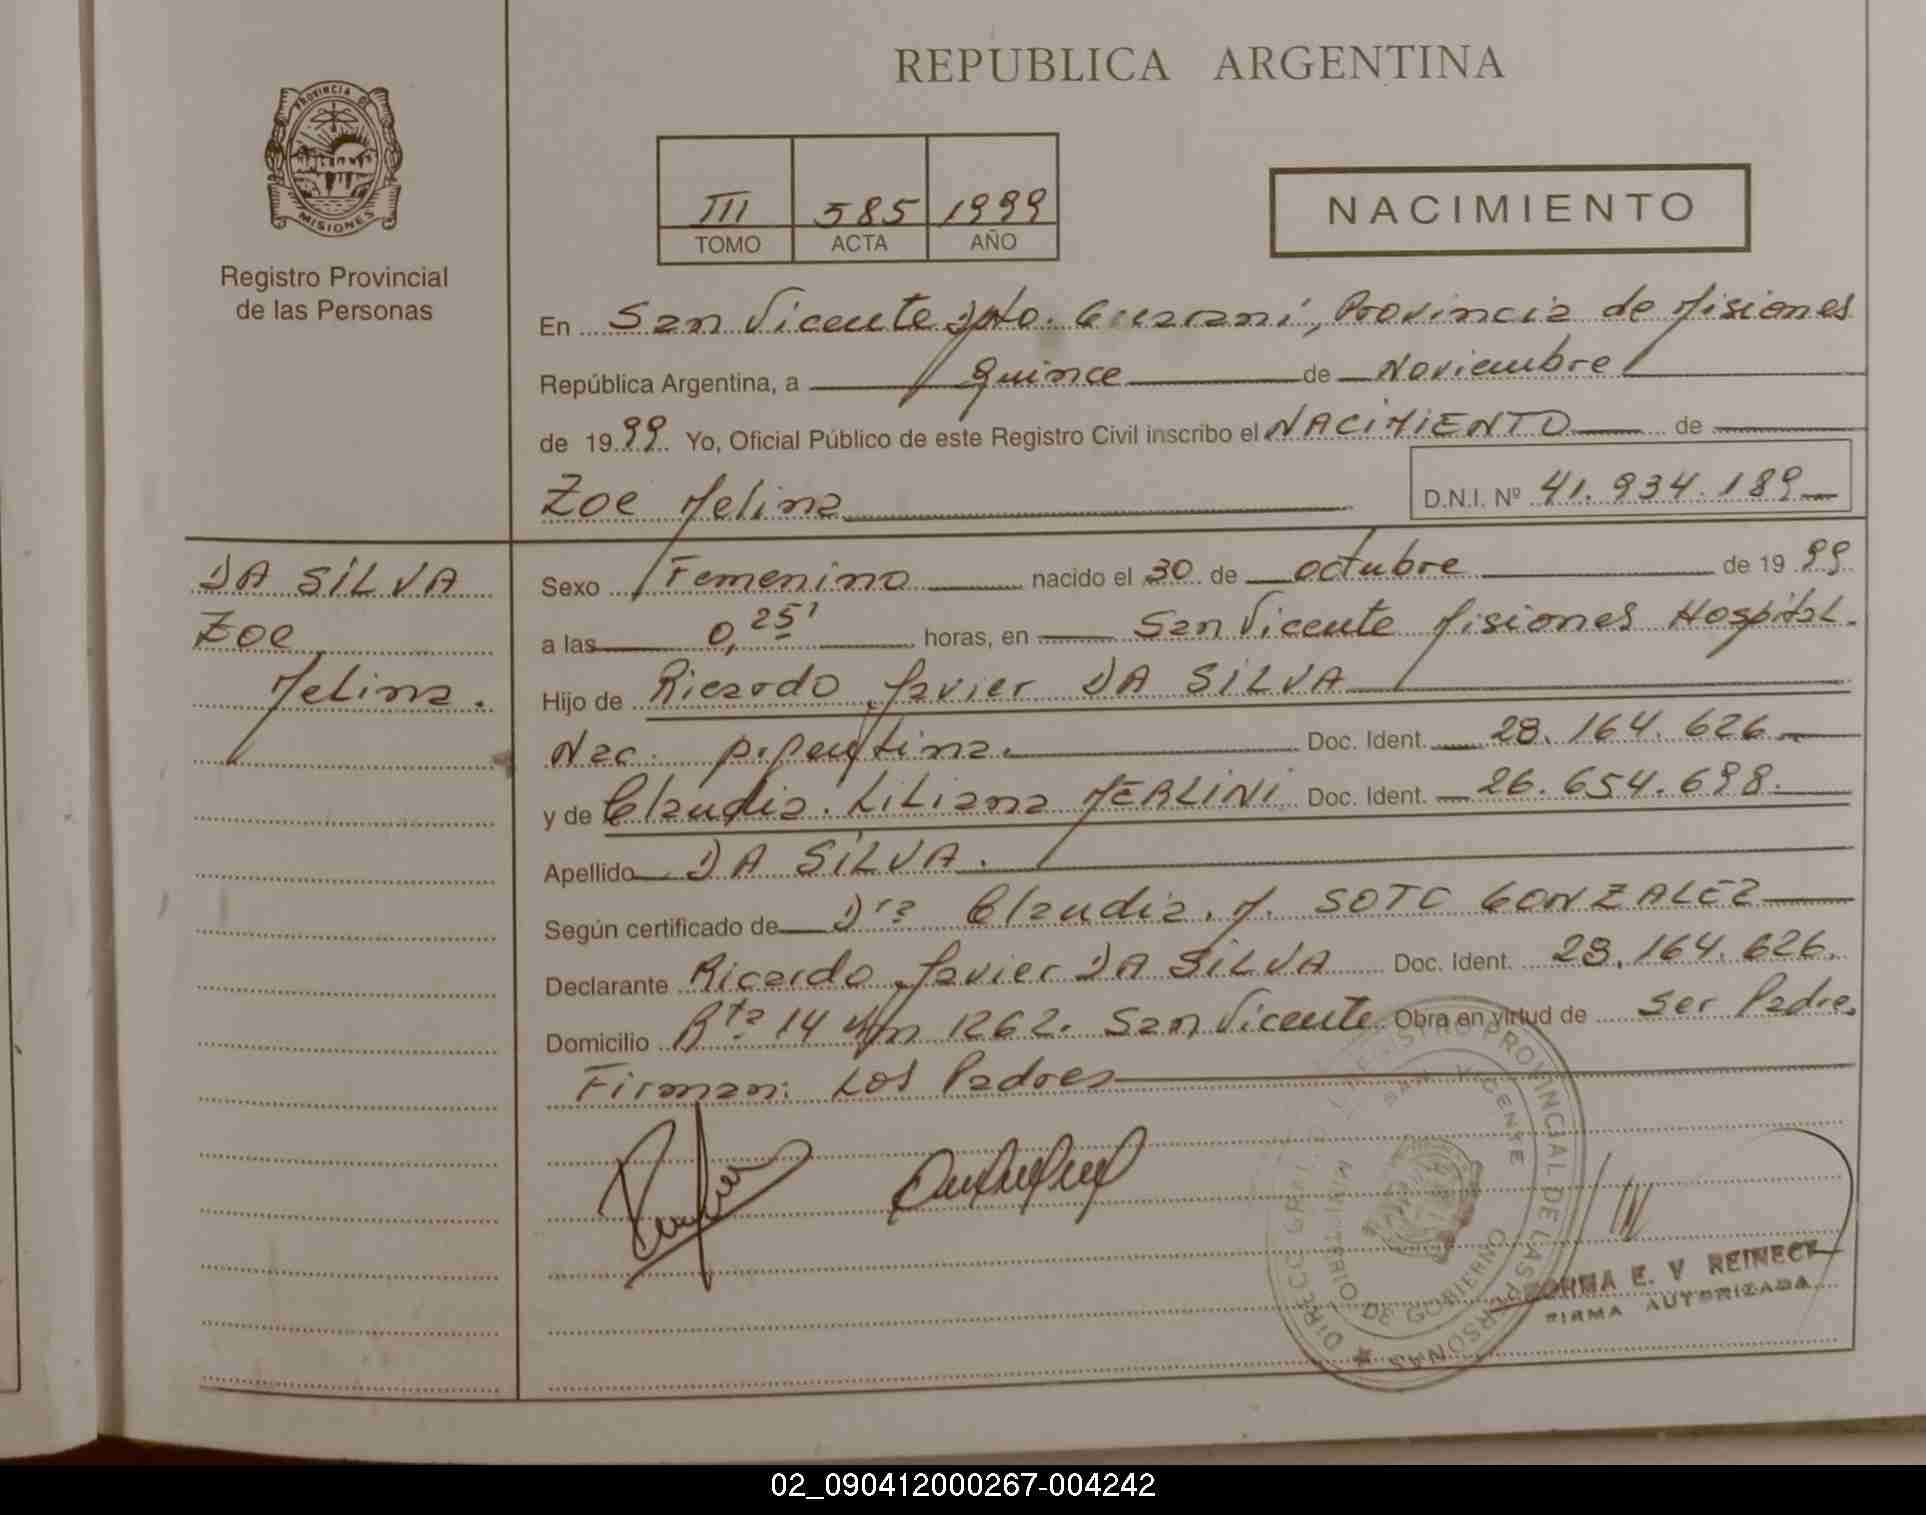 REPUBLICA ARGENTINA
PROVINCIA DE
MISIONES
Registro Provincial
de las Personas
III 585 1999
TOMO ACTA AÑO
NACIMIENTO
En San Vicente Dpto. Guarani, Provincia de Misiones
República Argentina, a Quince de Noviembre
de 1999 Yo, Oficial Público de este Registro Civil inscribo el NACIMIENTO de
Zoe Melina D.N.I. Nº 41.934.189
DA SILVA
Zoe
Melina.
Sexo Femenino nacido el 30 de octubre de 1999
a las 0,25' horas, en San Vicente Misiones Hospital.
Hijo de Ricardo Javier DA SILVA
Nac. Argentina. Doc. Ident. 28.164.626
y de Claudia Liliana MERLINI Doc. Ident. 26.654.698.
Apellido DA SILVA.
Según certificado de Dra Claudia. M. SOTO GONZALEZ
Declarante Ricardo Javier DA SILVA Doc. Ident. 28.164.626.
Domicilio Rta 14 Km 1262. San Vicente Obra en virtud de Ser Padre.
Firman: Los Padres
PROVINCIAL DE LAS PERSONAS
SAN VICENTE
MINISTERIO DE GOBIERNO
E. V REINECK
FIRMA AUTORIZADA
02_090412000267-004242